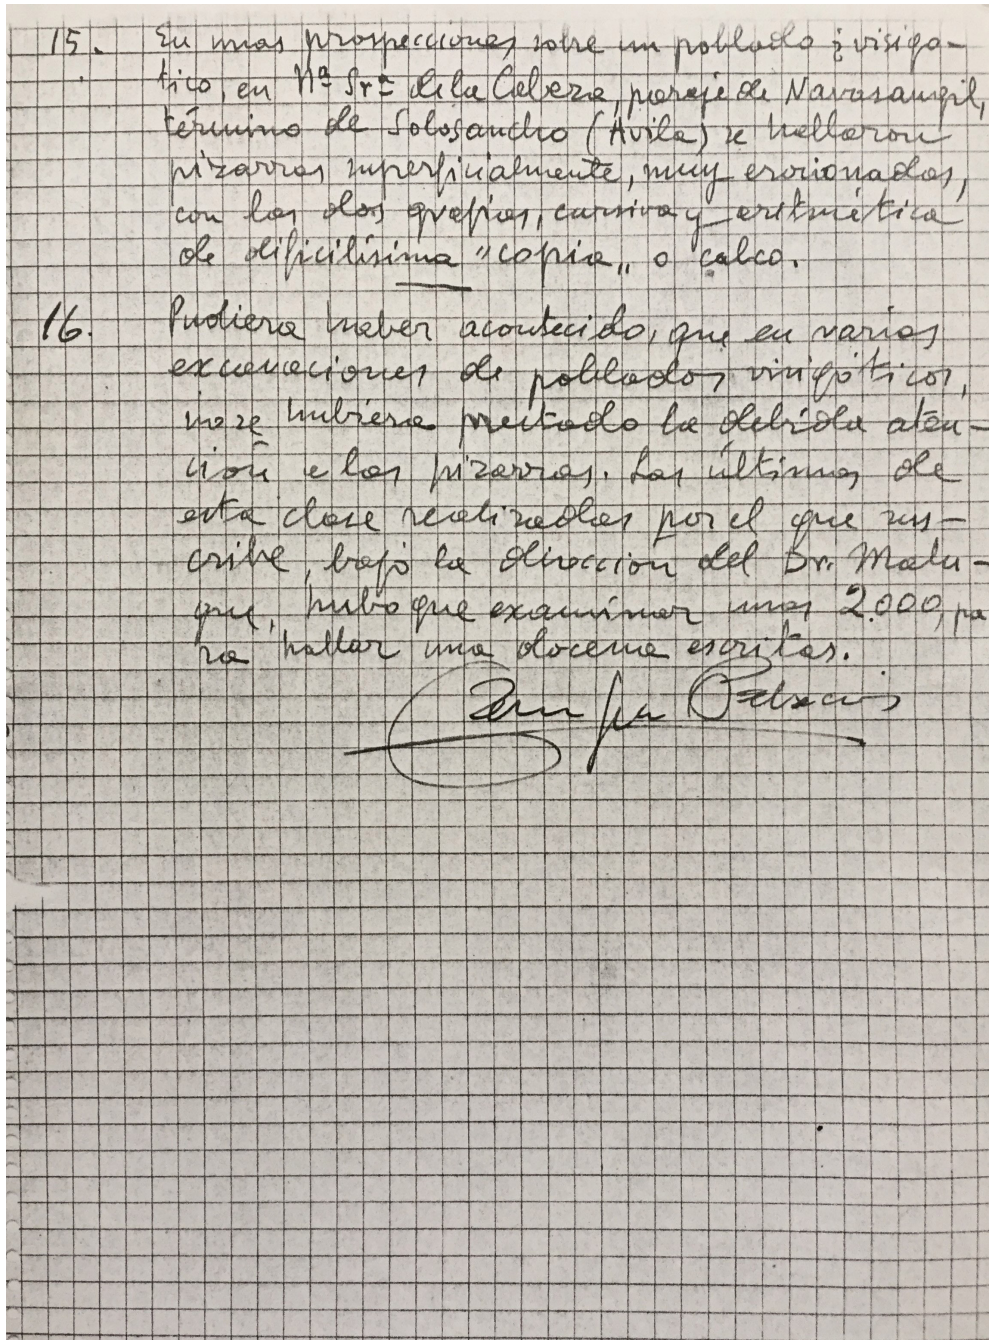 15. En unas prospecciones sobre un poblado ¿visigo-
tico, en Nª Srª de la Cabeza, paraje de Navasangil,
término de Solosancho (Ávila) se hallaron
pizarras superficialmente, muy erosionadas,
con las dos grafías, cursiva y aritmética
de dificilísima "copia" o calco.
16. Pudiera haber acontecido, que en varias
excavaciones de poblados visigóticos,
no se hubiera prestado la debida aten-
ción a las pizarras. Las últimas de
esta clase realizadas por el que sus-
cribe, bajo la dirección del Dr. Malu-
que, hubo que examinar unas 2.000, pa
ra hallar una docena escritas.